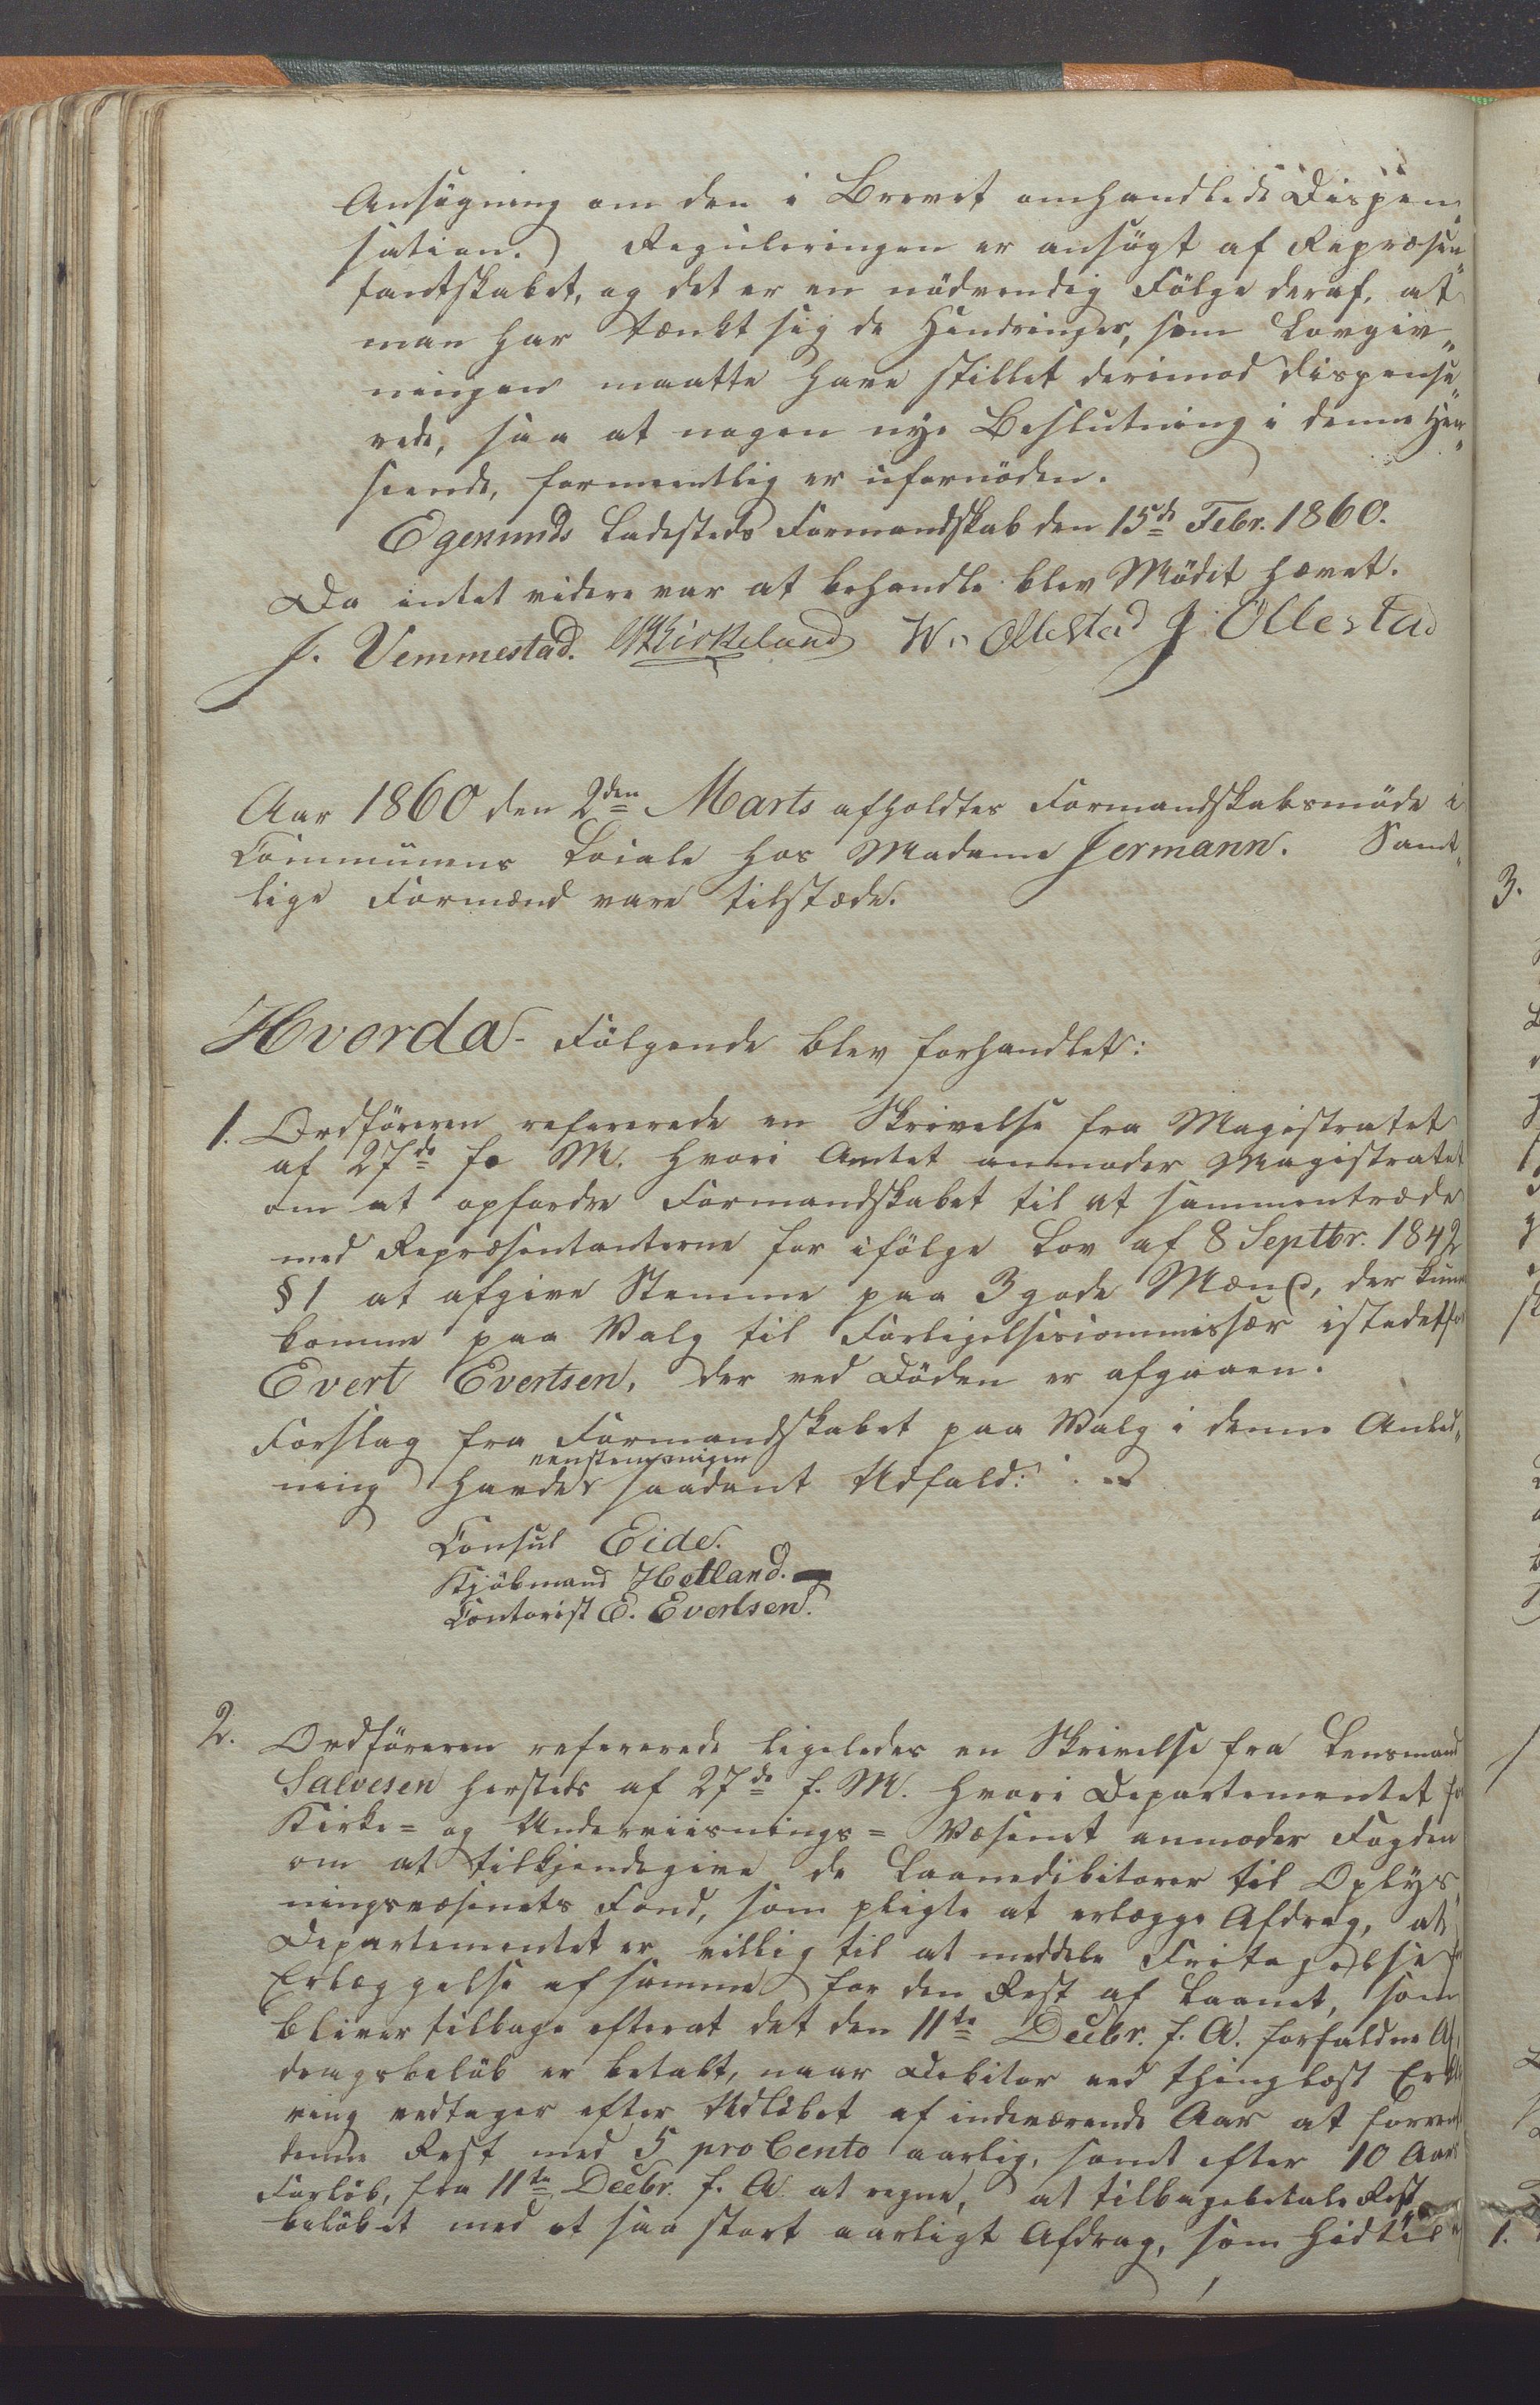 Ansögning om den i Brevet omhandlede Dispen„
sation. Reguleringen er ansögt af Repræsen„
tantskabet, og det er en nödvendig Fölge deraf, at
man har tænkt sig de Hindringer, som Lovgiv„
ningen maatte have stillet derimod dispense„
rede, saa at nogen nye Beslutning i denne Hen„
seende, formeentlig er ufornöden.
Egersunds Ladesteds Formandskab den 15de Febr. 1860.
Da intet videre var at behandle blev Mödet hævet.
J. Vemmestad. Kirkeland W. Ollestad J Ollestad
Aar 1860 den 2den Marts afholdtes Formandskabsmöde i
Communens Locale hos Madame Jermann. Samt„
lige Formænd vare tilstæde.
Hvorda Fölgende blev forhandlet:
1. Ordföreren refererede en Skrivelse fra Magistratet
af 27de f. M. hvori Amtet anmoder Magistratet
om at opfordre Formandskabet til at sammentræde
med Repræsentanterne for ifölge Lov af 8 Septbr. 1842
§ 1 at afgive Stemme paa 3 gode Mænd, der kunne
komme paa Valg til Forligelsescommissær istedetfor
Evert Evertsen, der ved Döden er afgaaen.
Forslag fra Formandskabet paa Valg i denne Anled„
eenstemmigen
ning havde saadant Udfald:
Consul Eide.
Kjöbmand Hetland.
Contorist E. Evertsen.
2. Ordföreren refererede ligeledes en Skrivelse fra Lensmand
Salvesen hersteds af 27de f. M. hvori Departementet for
Kirke= og Underviisnings= Væsenet anmoder Fogden
om at tilkjendegive de Laanedebitorer til Oplys„
ningsvæsenets Fond, som pligte at erlægge Afdrag, at
Departementet er villig til at meddele Fritagelse for
Erlæggelse af samme for den Rest af Laanet, som
bliver tilbage efterat det den 11te Decbr. f. A. forfaldne Af„
dragsbelöb er betalt, naar Debitor ved thinglæst Erklæ
ring vedtager efter Udlöbet af indeværende Aar at forrente
denne Rest med 5 pro Cento aarlig, samt efter 10 Aars
Forlöb, fra 11te Decbr. f. A. at regne, at tilbagebetale Rest„
belöbet med et saa stort aarligt Afdrag, som hidtil